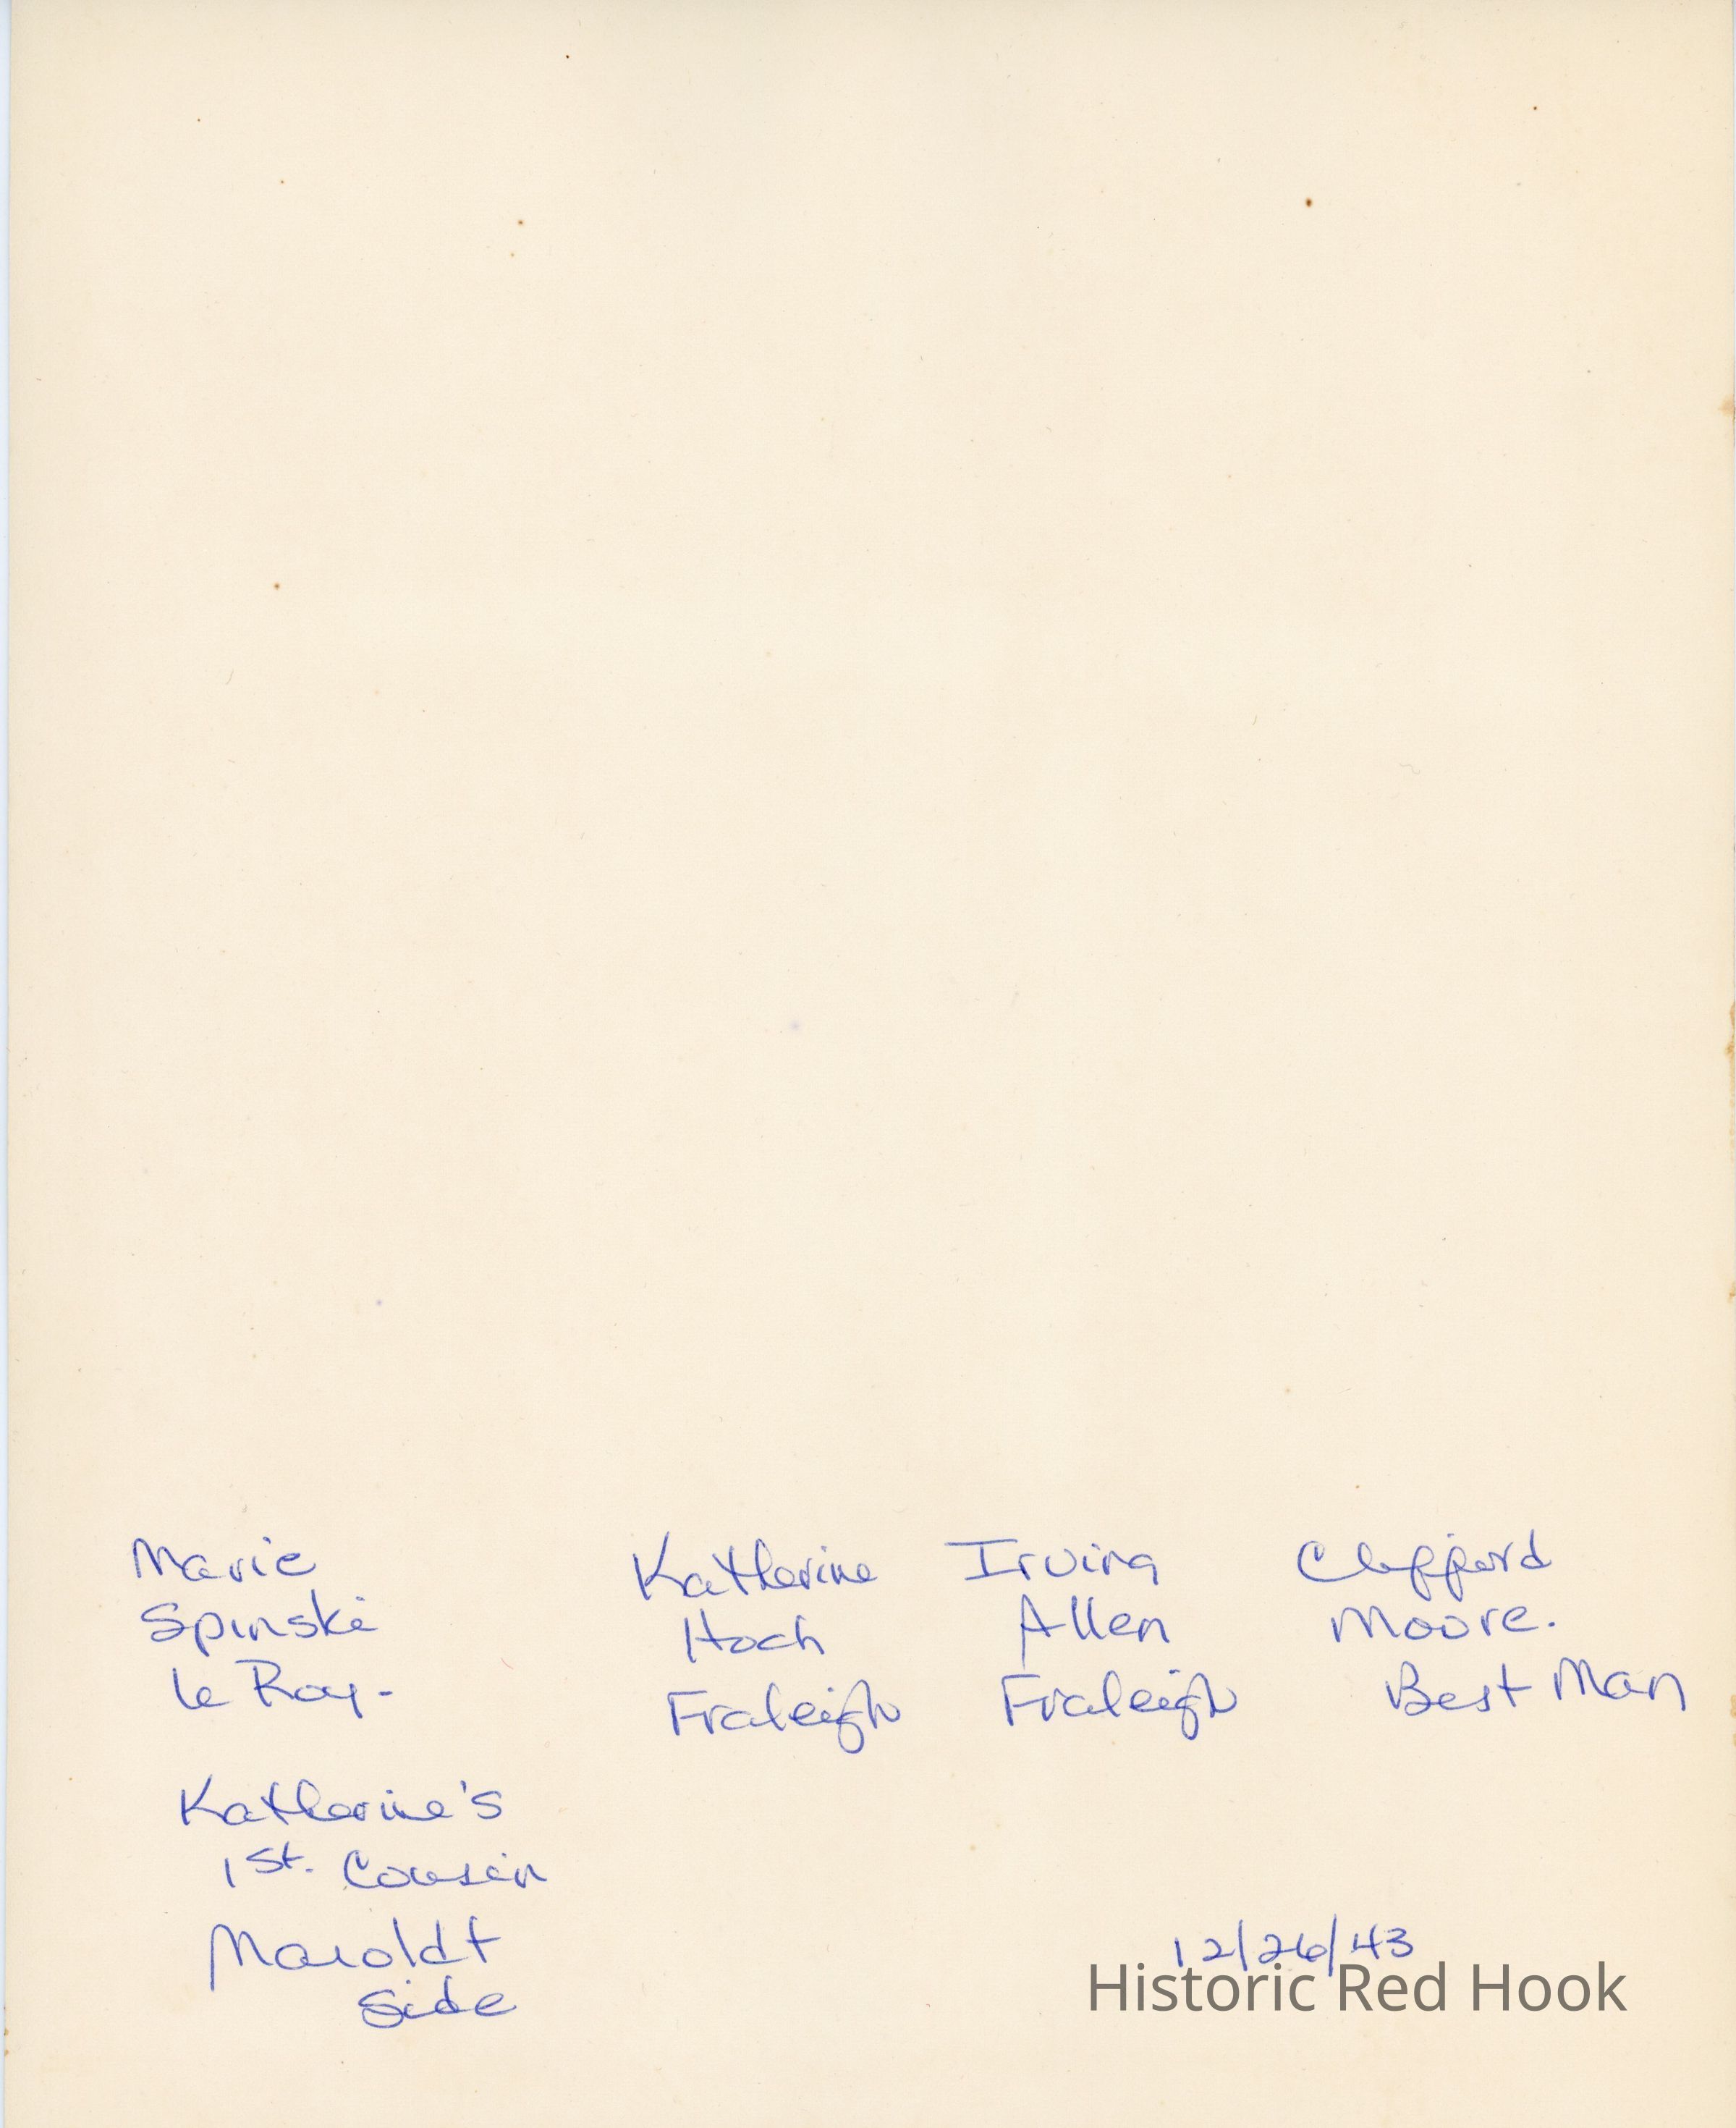 Marie
Spinski
le Roy-
Katherine's
1st. Cousin
Maroldt
Side
Katherine
Hoch
Fraleigh
Irving
Allen
Fraleigh
Clifford
Moore.
Best Man
12/26/43
Historic Red Hook